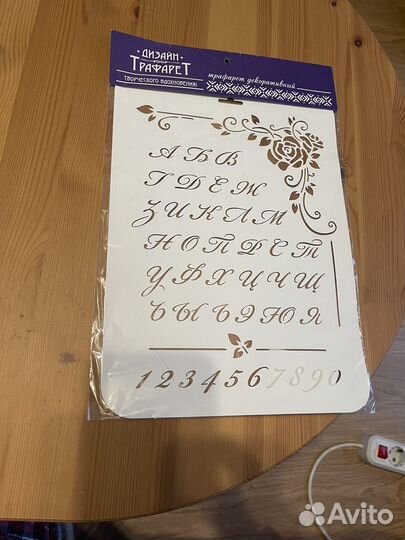 ДИЗАЙН
ТРАФАРЕТ
ТВОРЧЕСКОГО ВДОХНОВЕНИЯ!
трафарет декоративный
А Б В
Г Д Е Ж
З И К Л М
Н О П Р С Т
У Ф Х Ц Ч Щ
Ъ Ы Ь Э Ю Я
1 2 3 4 5 6 7 8 9 0
Avito